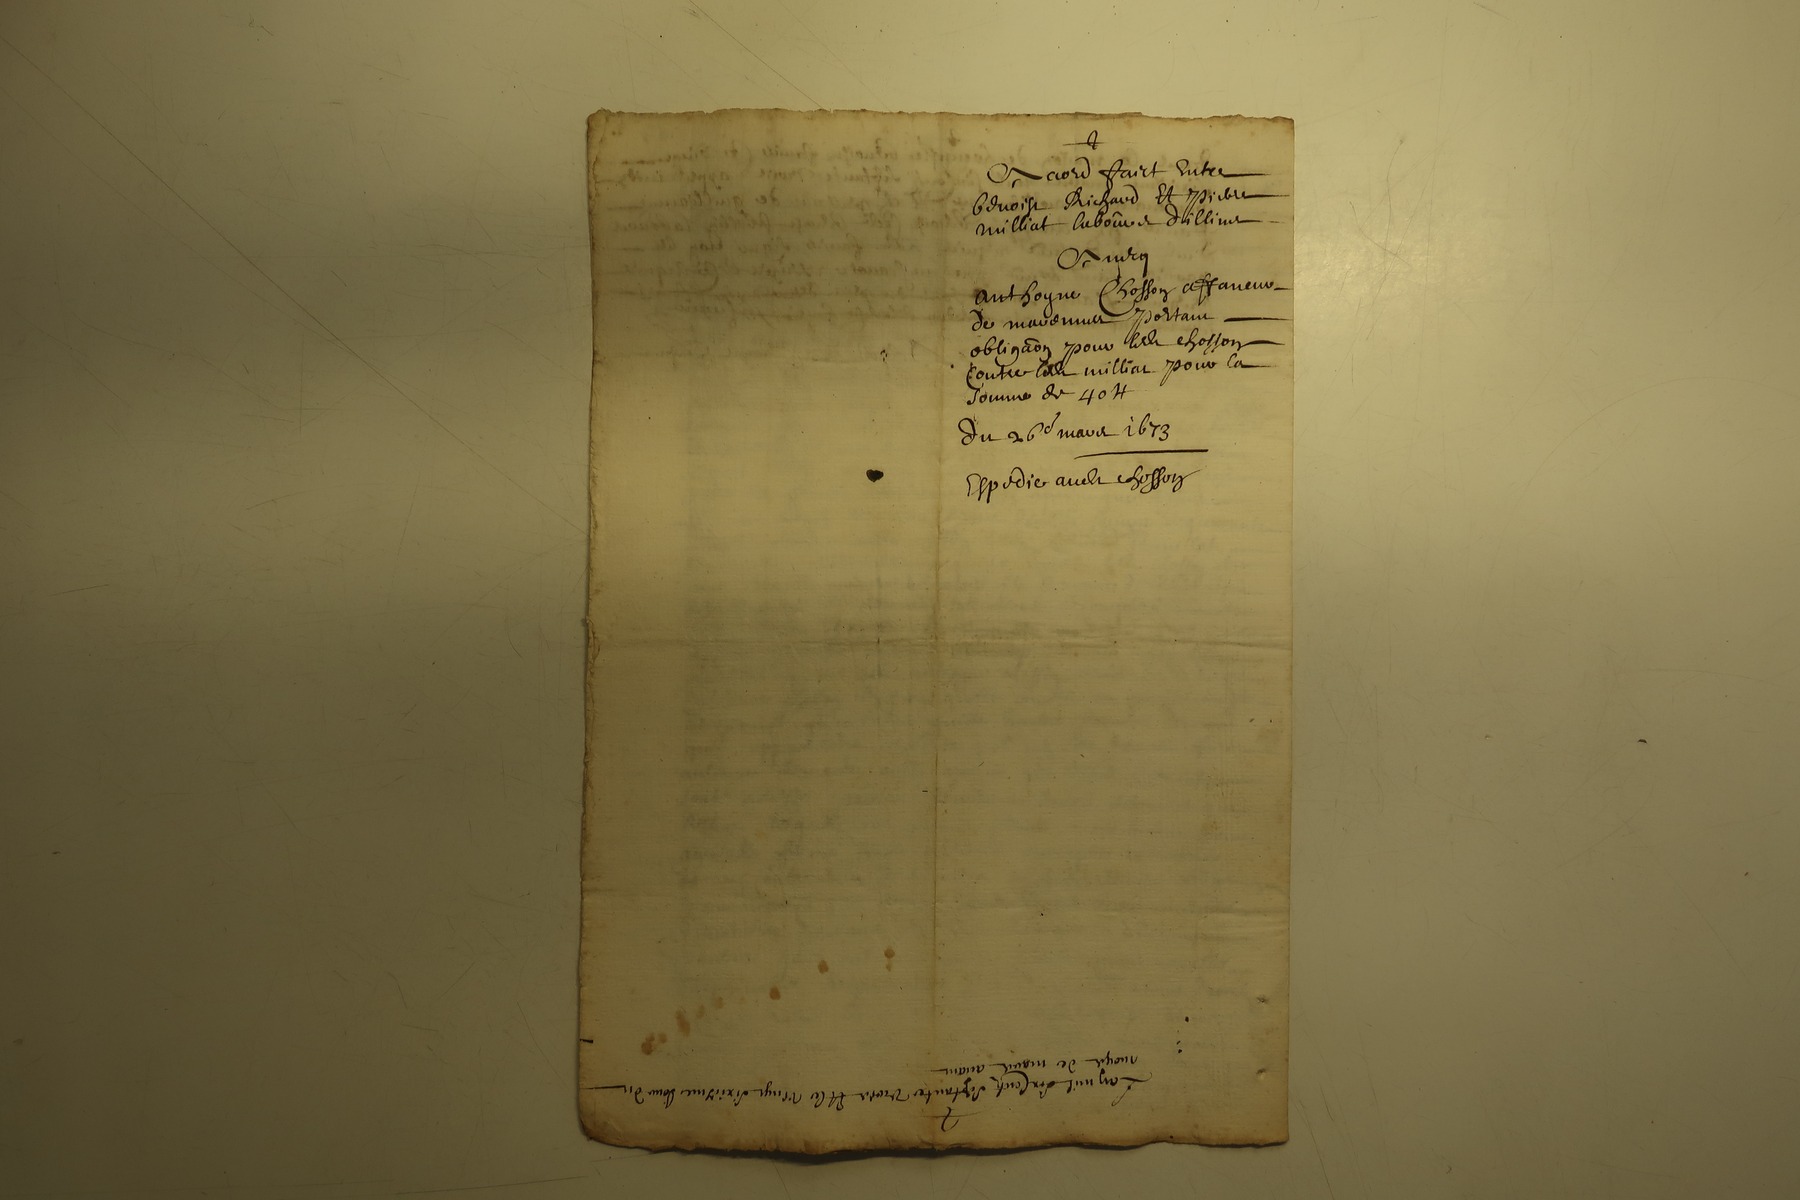 Acord faict Entre
benoist Richard Et pierre
milliat laboure dillins
Avecq
anthoyne Chosson affaneur
de marenner portant
obliga͠on pour led chosson
Contre led milliat pour la
somme de 40 ₶
Du 26e mars 1673
Expedie aud chosson
Lan mil six Centz septante trois Et le vingt sixiesme Jour du
moys de mars avant